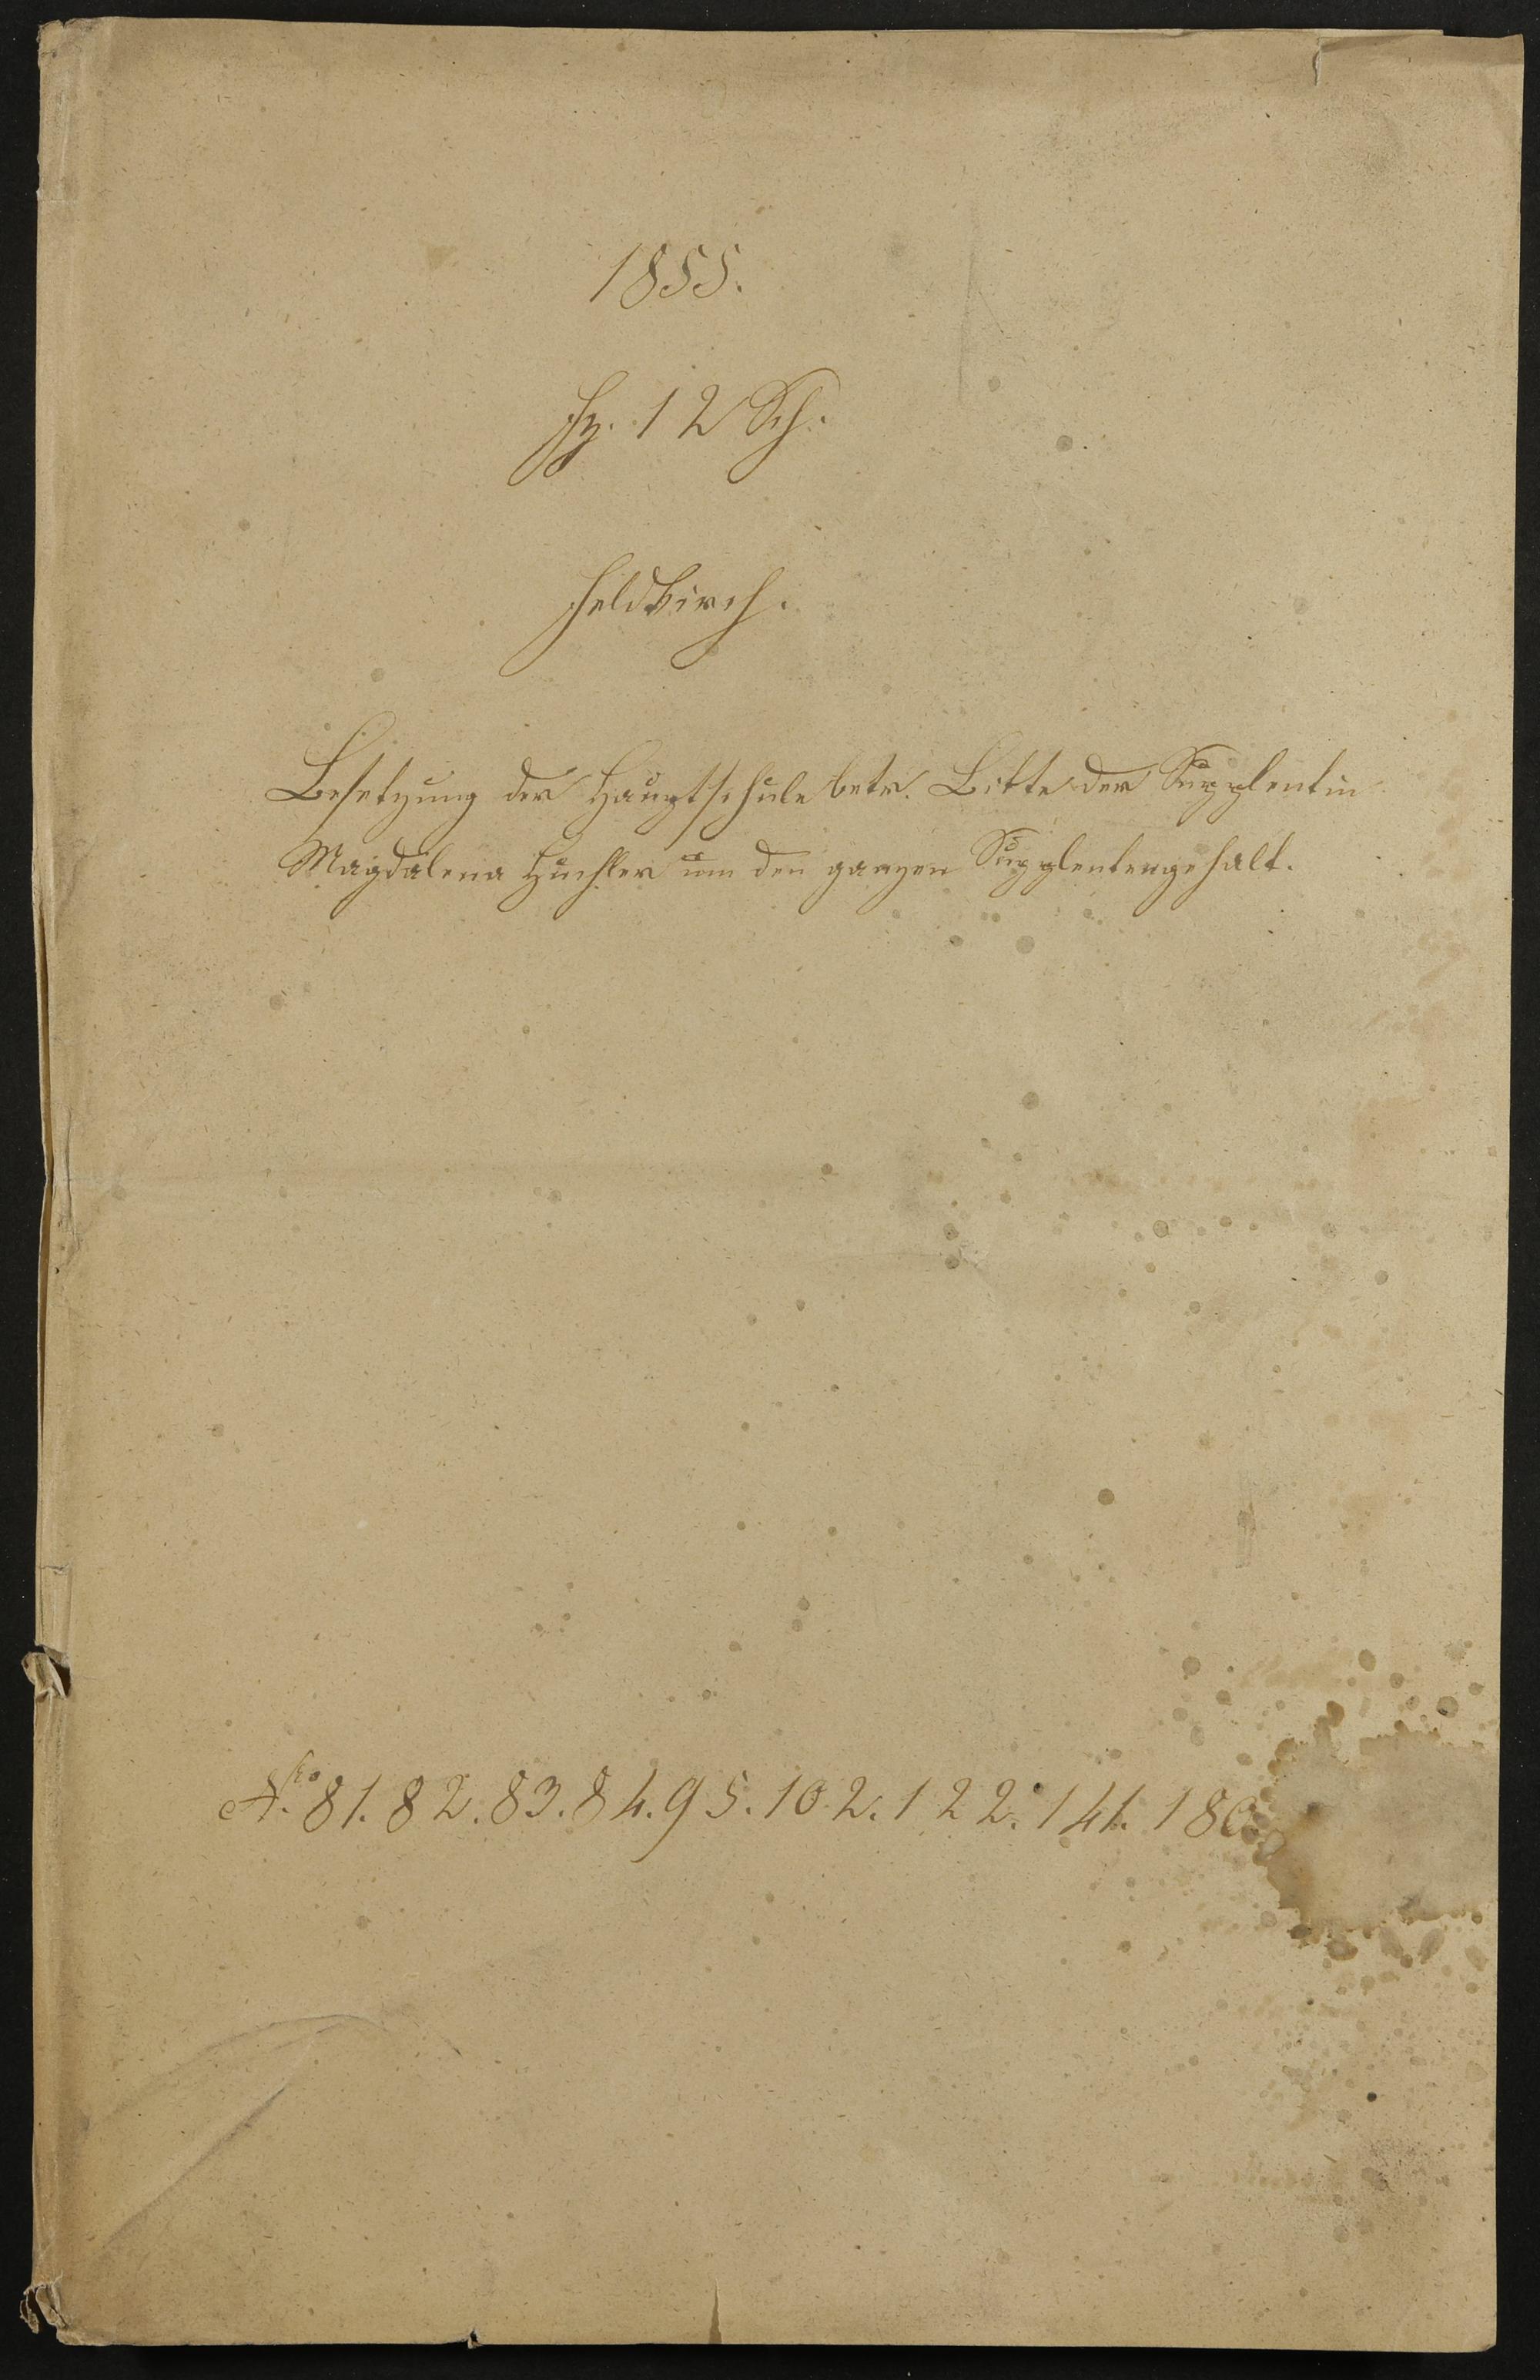 1855.
Fz. 12 Sch.
Feldkirch.
Besetzung der Hauptschule betr. Bitte der Supplentin
Magdalena Huchler um den ganzen Supplentengehalt.
No. 81. 82. 83. 84. 95. 102. 122. 141. 180